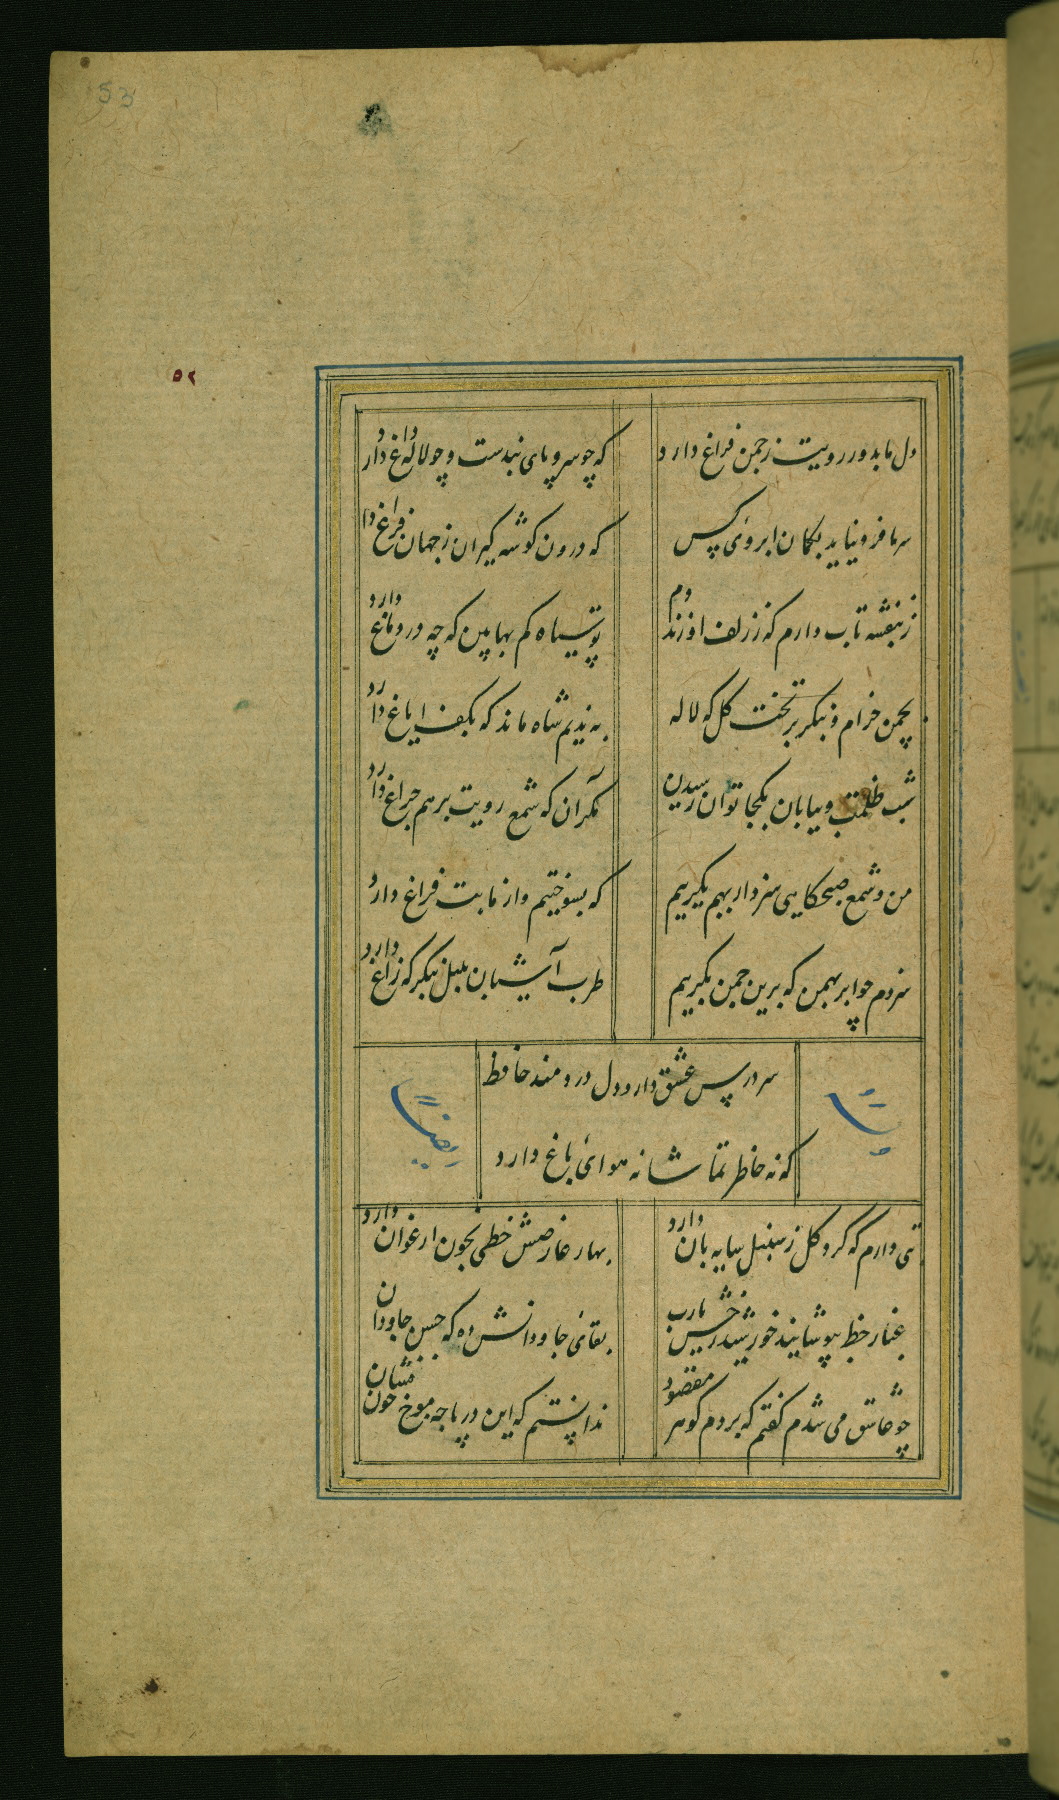 53
٥٢
دل ما بدور رویت زچمن فراغ دارد
که چو سرو پای بندست و چو لاله داغ دارد
سر ما فرو نیاید بکمان ابروی کس
که درون کوشه کیران ز جهان فراغ دا
ز بنفشه تاب دارم که ز زلف او زند دم
تو سیاه کم بها بین که چه در دماغ دارد
بچمن خرام و بنکر بر تخت کل که لاله
به ندیم شاه ماند که بکف ایاغ دارد
شب ظلمت و بیابان بکجا توان رسیدن
مکر آن که شمع رویت برهم چراغ دارد
من و شمع صبحکاهی سزد ار بهم بکرییم
که بسوختیم و از ما بت فراغ دارد
سزدم چو ابر بهمن که برین چمن بکریم
طرب آشیان بلبل بنکر که زاغ دارد
سر درس عشق دارد دل دردمند حافظ
که نه خاطر تماشا نه هوای باغ دارد
ایضا
بتی دارم که کرد کل ز سنبل سایه بان دارد
بهار عارضش خطی بخون ارغوان دارد
غبار خط بپوشانید خورشید رخش یارب
بقای جاودانش ده که حسن جاودان
چو عاشق می شدم کفتم که بردم کوهر مقصود
ندانستم که این دریا چه موج خون فشان